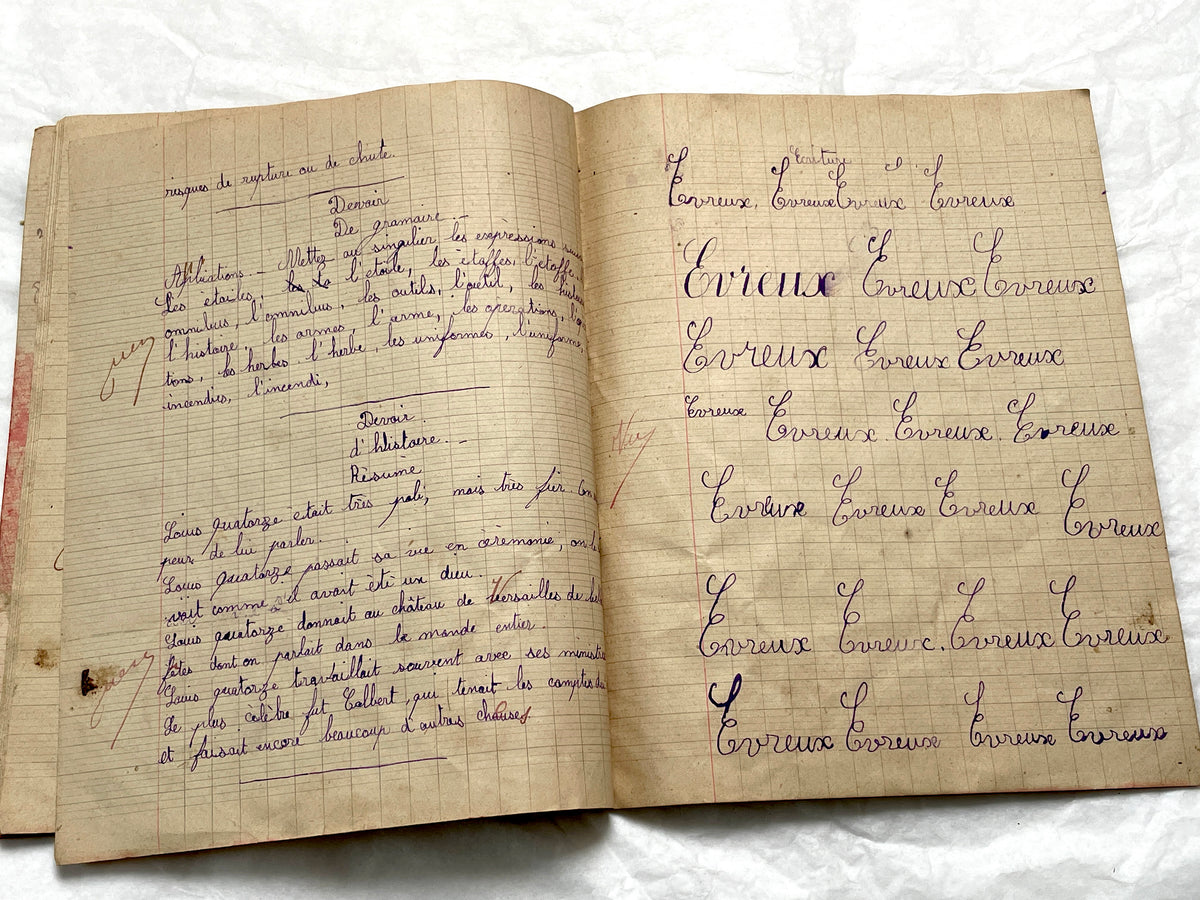 risques de rupture ou de chute.
Devoir
De gramaire. -
Aplications. - Mettez au singulier les expressions
Les étoiles, l'étoile, les étoffes, l'étoffe,
omnibus, l'omnibus, les outils, l'outil, les
l'histoire, les armes, l'arme, les operations,
tions, les herbes l'herbe, les uniformes, l'uniforme,
incendies, l'incendi,
Devoir
d'Histoire. -
Résumé
Louis quatorze etait très poli, mais très fier.
peur de lui parler.
Louis quatorze passait sa vie en cèrèmonie, on le
vait comme s'il avait étè un dieu.
Louis quatorze donnait au château de Versailles de
fêtes dont on parlait dans le monde entier.
Louis quatorze travaillait souvent avec ses ministre
Le plus cèlèbre fut Colbert, qui tenait les comptes
et faisait encore beaucoup d'autres choses.
Ecriture
Evreux, Evreux Evreux Evreux
Evreux Evreux Evreux
Evreux Evreux Evreux
Evreux Evreux. Evreux. Evreux
Evreux Evreux Evreux E
Evreux
E E E E
Evreux Evreux. Evreux Evreux
E E E E
Evreux Evreux Evreux Evreux